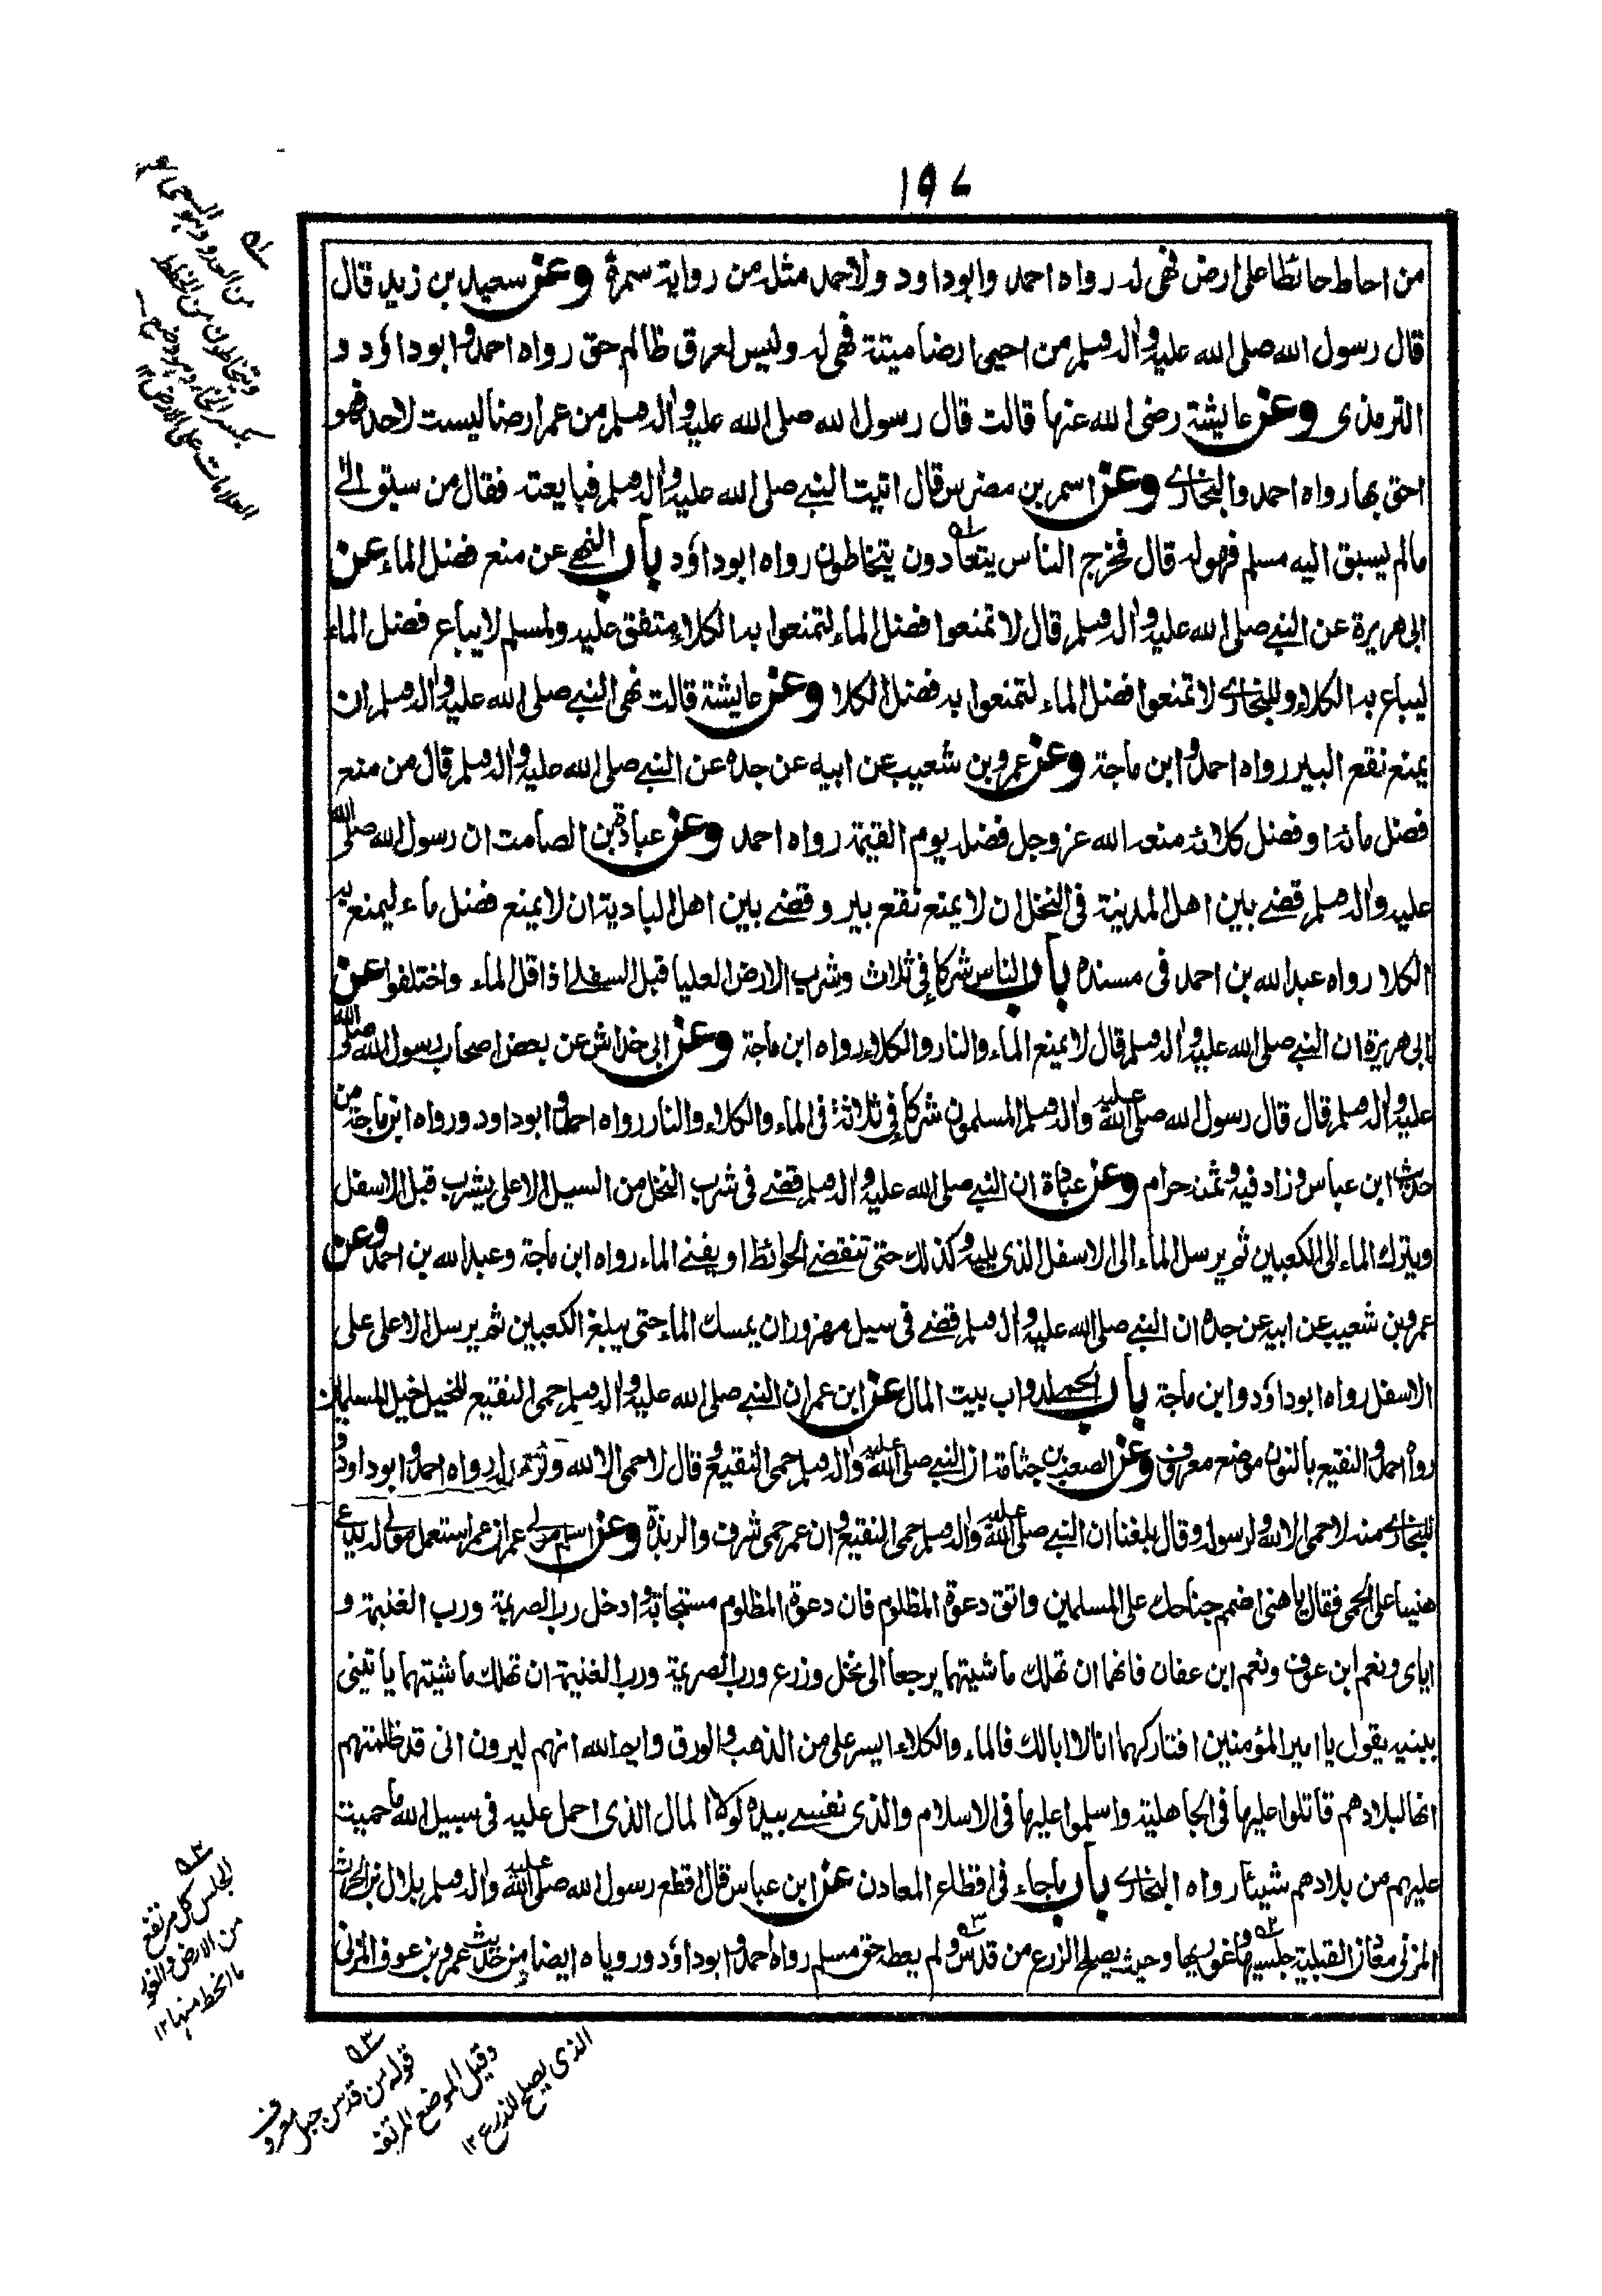 ١٩٧
من احاط حائطا على ارض فهى له رواه احمد وابوداود ولاحمد مثله من رواية سمرة وعن سعيد بن زيد قال
قال رسول الله صلى الله عليه واله وسلم من احيى ارضا ميتة فهى له وليس لعرق ظالم حق رواه احمد وابوداؤد و
الترمذى وعن عايشة رضى الله عنها قالت قال رسول الله صلى الله عليه واله وسلم من عمر ارضا ليست لاحد فهو
احق بها رواه احمد والبخارى وعن اسمر بن مضرس قال اتيت النبى صلى الله عليه واله وسلم فبايعته فقال من سبق الى
مالم يسبق اليه مسلم فهو له قال فخرج الناس يتعادون يتخاطون رواه ابوداؤد باب النهى عن منع فضل الماء عن
ابى هريرة عن النبى صلى الله عليه واله وسلم قال لا تمنعوا فضل الماء لتمنعوا به الكلاء متفق عليه ولمسلم لا يباع فضل الماء
ليباع به الكلاء وللبخارى لا تمنعوا فضل الماء لتمنعوا به فضل الكلا وعن عايشة قالت نهى النبى صلى الله عليه واله وسلم ان
يمنع نقع البير رواه احمد وابن ماجة وعن عمرو بن شعيب عن ابيه عن جده عن النبى صلى الله عليه واله وسلم قال من منع
فضل مائه او فضل كلائه منعه الله عز وجل فضله يوم القيمة رواه احمد وعن عبادة بن الصامت ان رسول الله صلى الله
عليه واله وسلم قضى بين اهل المدينة فى النخل ان لا يمنع نقع بير وقضى بين اهل البادية ان لا يمنع فضل ماء ليمنع به
الكلا رواه عبد الله بن احمد فى مسنده باب الناس شركا فى ثلاث وشرب الارض العليا قبل السفلى اذا قل الماء واختلفوا عن
ابى هريرة ان النبى صلى الله عليه واله وسلم قال لا يمنع الماء والنار والكلاء رواه ابن ماجة وعن ابى خداش عن بعض اصحاب رسول الله صلى الله
عليه واله وسلم قال قال رسول الله صلى الله عليه واله وسلم المسلمون شركا فى ثلاثة فى الماء والكلاء والنار رواه احمد وابوداود ورواه ابن ماجة من
حديث ابن عباس وزاد فيه وثمنه حرام وعن عبادة ان النبى صلى الله عليه واله وسلم قضى فى شرب النخل من السيل ان الاعلى يشرب قبل الاسفل
ويترك الماء الى الكعبين ثم يرسل الماء الى الاسفل الذى يليه وكذلك حتى تنقضى الحوائط او يفنى الماء رواه ابن ماجة وعبد الله بن احمد وعن
عمرو بن شعيب عن ابيه عن جده ان النبى صلى الله عليه واله وسلم قضى فى سيل مهزور ان يمسك الماء حتى يبلغ الكعبين ثم يرسل الاعلى على
الاسفل رواه ابوداؤد وابن ماجة باب الحمى لدواب بيت المال عن ابن عمر ان النبى صلى الله عليه واله وسلم حمى النقيع للخيل خيل المسلمين
رواه احمد والنقيع بالنون موضع معروف وعن الصعب بن جثامة ان النبى صلى الله عليه واله وسلم حمى النقيع وقال لا حمى الا لله ولرسوله رواه احمد وابوداود و
للبخارى منه لا حمى الا لله ولرسوله وقال بلغنا ان النبى صلى الله عليه واله وسلم حمى النقيع وان عمر حمى شرف والربذة وعن اسلم مولى عمر ان عمر استعمل مولى له يدعى
هنيا على الحمى فقال يا هنى اضمم جناحك على المسلمين واتق دعوة المظلوم فان دعوة المظلوم مستجابة وادخل رب الصريمة ورب الغنيمة و
اياى ونعم ابن عوف ونعم ابن عفان فانهما ان تهلك ماشيتهما يرجعا الى نخل وزرع ورب الصريمة ورب الغنيمة ان تهلك ماشيتهما ياتينى
ببنيه يقول يا امير المؤمنين افتاركهما انا لا ابالك فالماء والكلاء ايسر على من الذهب والورق وايم الله انهم ليرون انى قد ظلمتهم
انها لبلادهم قاتلوا عليها فى الجاهلية واسلموا عليها فى الاسلام والذى نفسى بيده لولا المال الذى احمل عليه فى سبيل الله ما حميت
عليهم من بلادهم شيئا رواه البخارى باب ماجاء فى اقطاع المعادن عن ابن عباس قال اقطع رسول الله صلى الله عليه واله وسلم بلال بن الحارث
المزنى معادن القبلية جلسيها وغوريها وحيث يصلح الزرع من قدس ولم يعطه حق مسلم رواه احمد وابوداؤد وروياه ايضا من حديث عمرو بن عوف المزنى
من العدو
ويتخاطون من الخط
العلامات على الارض ١٢
الجلس كل مرتفع
من الارض والغور
ما انخط منها ١٢
قوله من قدس جبل معروف
وقيل الموضع المرتفع
الذى يصلح للزرع ١٢